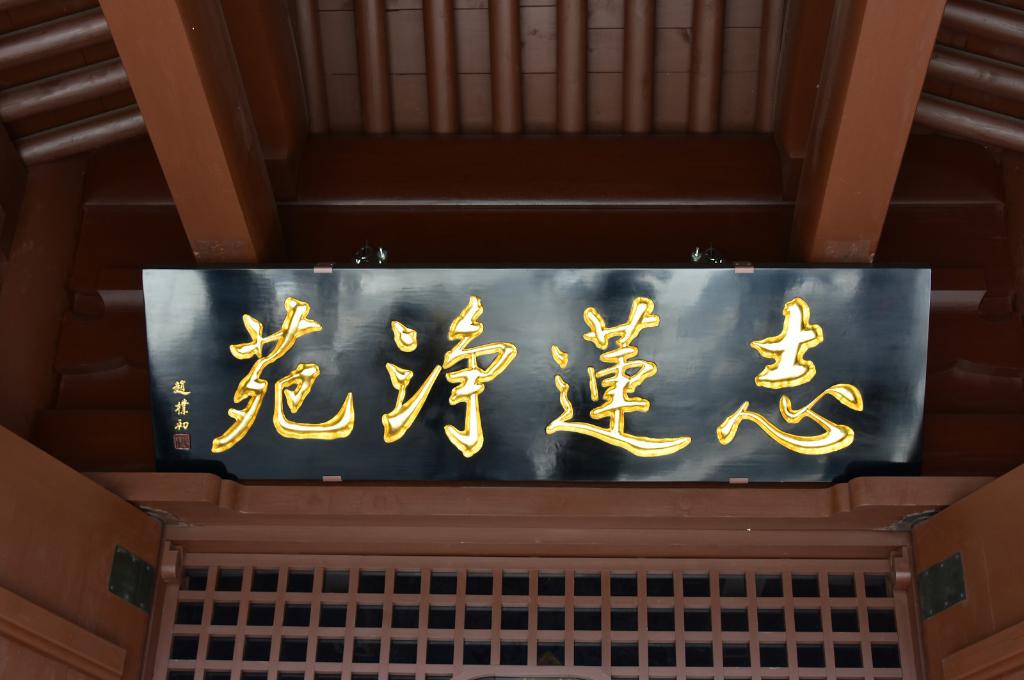 志蓮淨苑
趙樸初